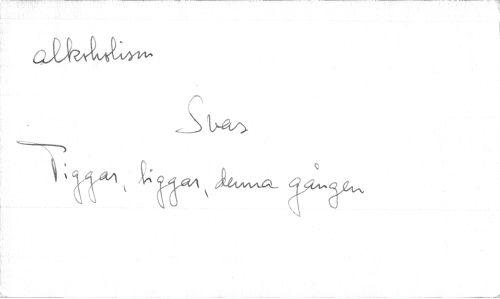 alkoholism
Svar
Tiggar, tiggar, denna gången